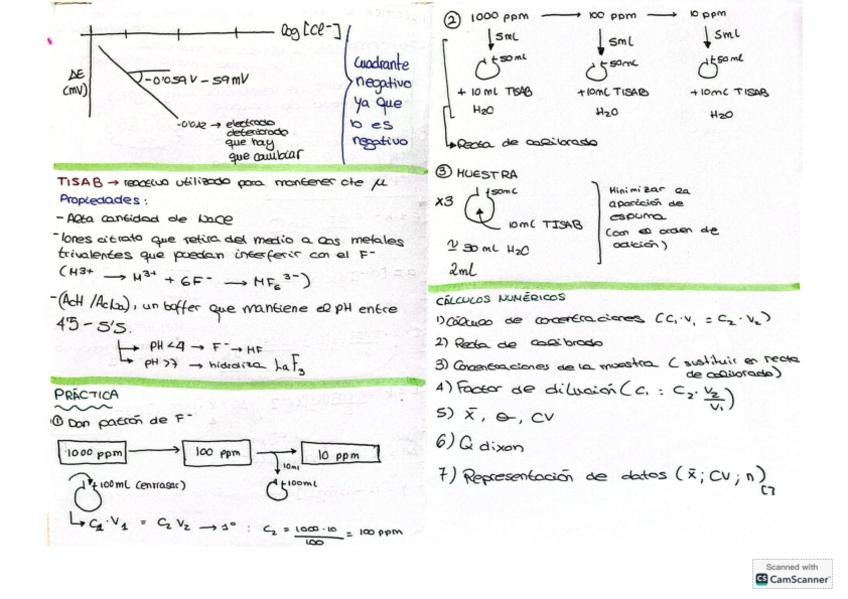 log [Cl-]
ΔE
(mV)
-0'059V - 59mV
-0'042 → electrodo
deteriorado
que hay
que cambiar
Cuadrante
negativo
ya que
b es
negativo
TISAB → reactivo utilizado para mantener cte μ
Propiedades:
- Alta cantidad de NaCl
- Iones citrato que retira del medio a los metales
trivalentes que puedan interferir con el F-
(M3+ → M3+ + 6F- → MF6 3-)
- (AcH / AcNa), un buffer que mantiene el pH entre
4'5 - 5'5.
pH <4 → F- → HF
pH >7 → hidroliza LaF3
PRÁCTICA
① Dan patrón de F-
1000 ppm → 100 ppm → 10 ppm
10ml
+100mL (enrasar)
+100mL
↳ C1·V1 = C2 V2 → 1º : C2 = 1000·10 / 100 = 100 ppm
② 1000 ppm → 100 ppm → 10 ppm
↓5mL ↓5mL ↓5mL
+50mL +50mL +50mL
+10mL TISAB +10mL TISAB +10mL TISAB
H2O H2O H2O
Recta de calibrado
③ MUESTRA
+50mL
x3
10mL TISAB
≃ 30 mL H2O
2mL
Minimizar la
aparición de
espuma
(con el orden de
adición)
CÁLCULOS NUMÉRICOS
1) Cálculo de concentraciones (C1·V1 = C2·V2)
2) Recta de calibrado
3) Concentraciones de la muestra (sustituir en recta
de calibrado)
4) Factor de dilución (C1 = C2·V2/V1)
5) x̄, σ, CV
6) Q dixon
7) Representación de datos (x̄; CV; n)
Scanned with
CS CamScanner